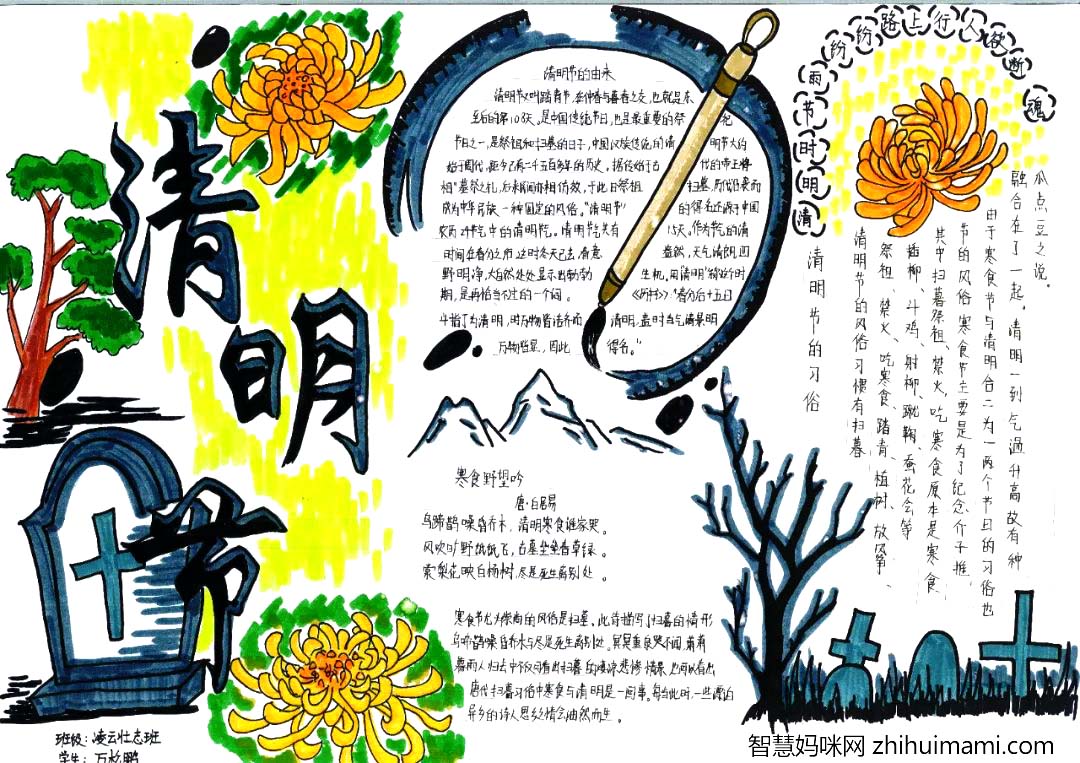 清明节
清明节的由来
清明节又叫踏青节，在仲春与暮春之交，也就是冬
至后的第108天。是中国传统节日，也是最重要的祭
节日之一，是祭祖和扫墓的日子，中国汉族传统的清 明节大约
始于周代，距今已有二千五百多年的历史，据传始于古 代的帝王将
相"墓祭之礼，后来民间亦相仿效，于此日祭祖 扫墓，历代沿袭而
成为中华民族一种固定的风俗。"清明节" 的得名还源于中国
农历24节气中的清明节气。清明节气共有 15天。作为节气的清
时间在春分之后这时冬天已去，春意 盎然，天气清朗，四
野明净，大自然处处显示出勃勃 生机。用清明"称这个时
期，是再恰当不过的一个词。 《历书》："春分后十五日
斗指丁为清明，时万物皆洁齐而 清明，盖时当气清景明
万物皆显，因此 得名。"
寒食野望吟
唐·白居易
乌啼鹊噪昏乔木，清明寒食谁家哭。
风吹旷野纸钱飞，古墓垒垒春草绿。
棠梨花映白杨树，尽是死生离别处。
寒食节尤为崇尚的风俗是扫墓。此诗描写了扫墓的情形
乌啼鹊噪昏乔木与尽是死生离别处。冥冥重泉哭不闻，萧萧
暮雨人归去中不仅可看出扫墓的凄凉悲惨情景，也可以看出
唐代扫墓习俗中寒食与清明是一回事。每当此时，一些漂泊
异乡的诗人思乡情念油然而生。
清明时节雨纷纷路上行人欲断魂
瓜点豆之说。
融合在了一起。清明一到气温升高故有种
由于寒食节与清明合二为一两个节日的习俗也
节的风俗寒食节主要是为了纪念介子推，
其中扫墓祭祖、禁火，吃寒食原本是寒食
插柳、斗鸡、射柳、蹴鞠、蚕花会等
祭祖、禁火、吃寒食、踏青、植树、放风筝、
清明节的风俗习惯有扫墓
清明节的习俗
班级：凌云壮志班
学生：万 鹏
智慧妈咪网 zhihuimami.com